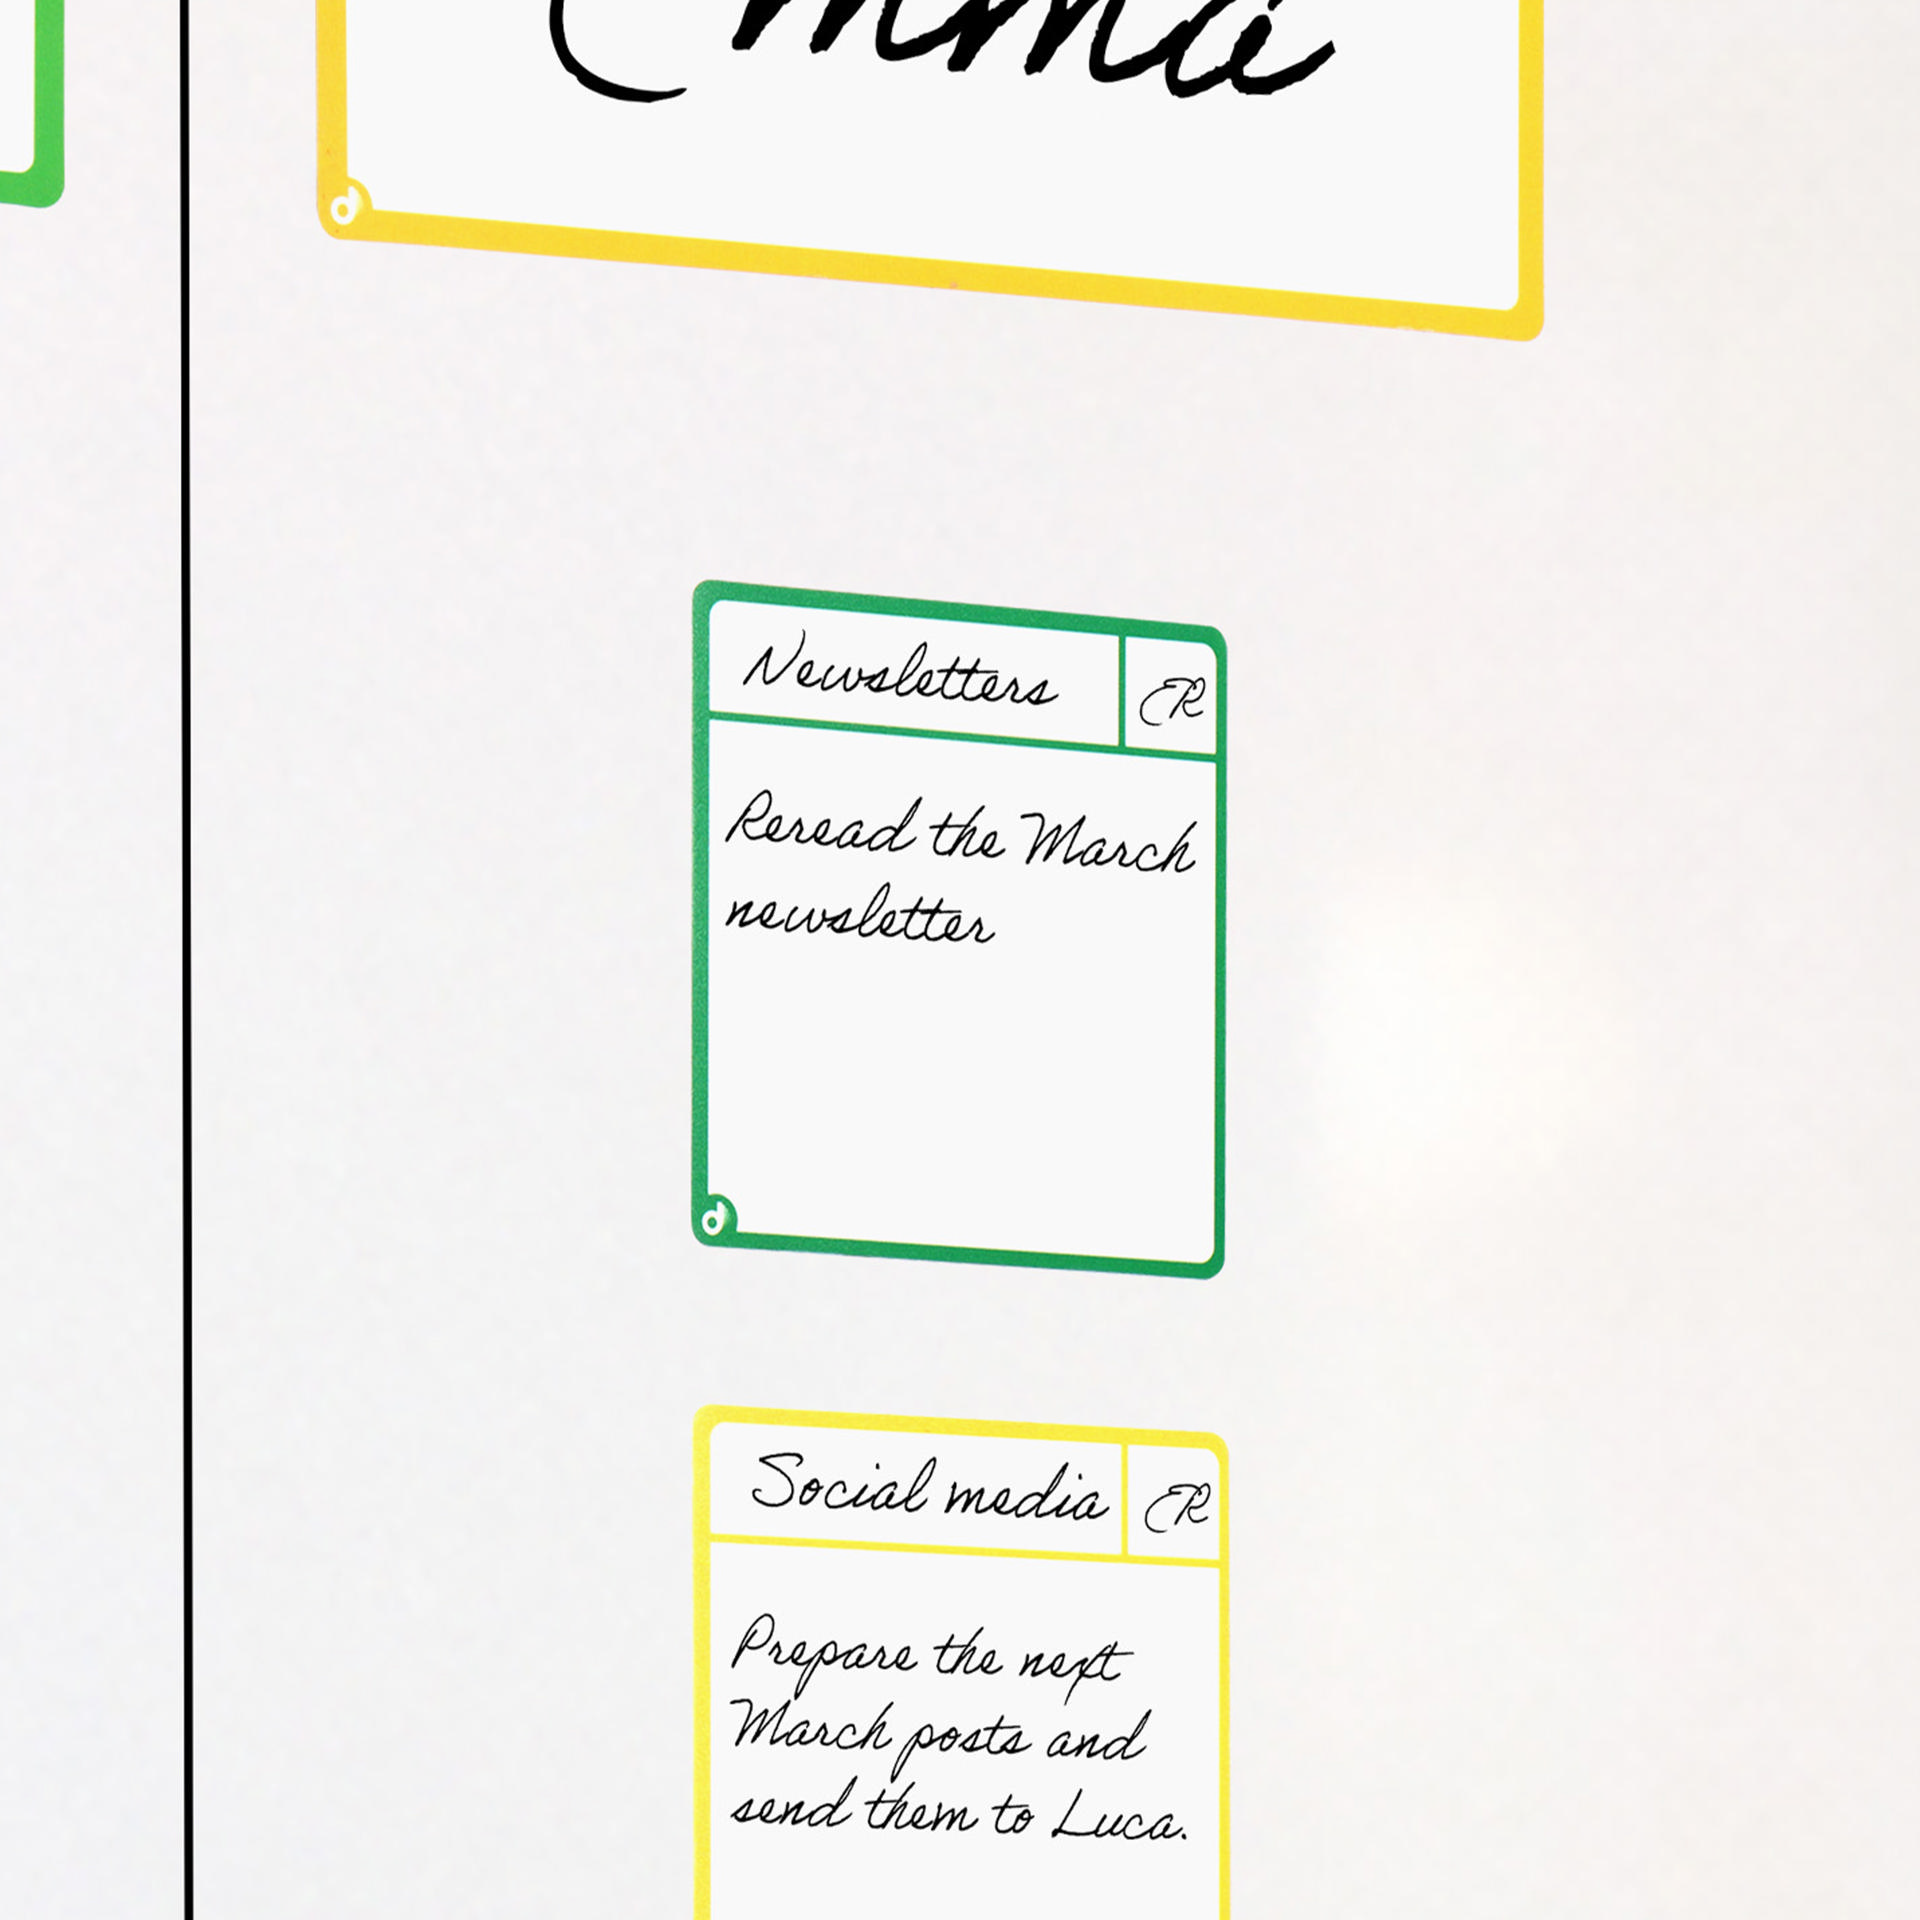 Emma
Newsletters
ER
Reread the March
newsletter
d
Social media
ER
Prepare the next
March posts and
send them to Luca.